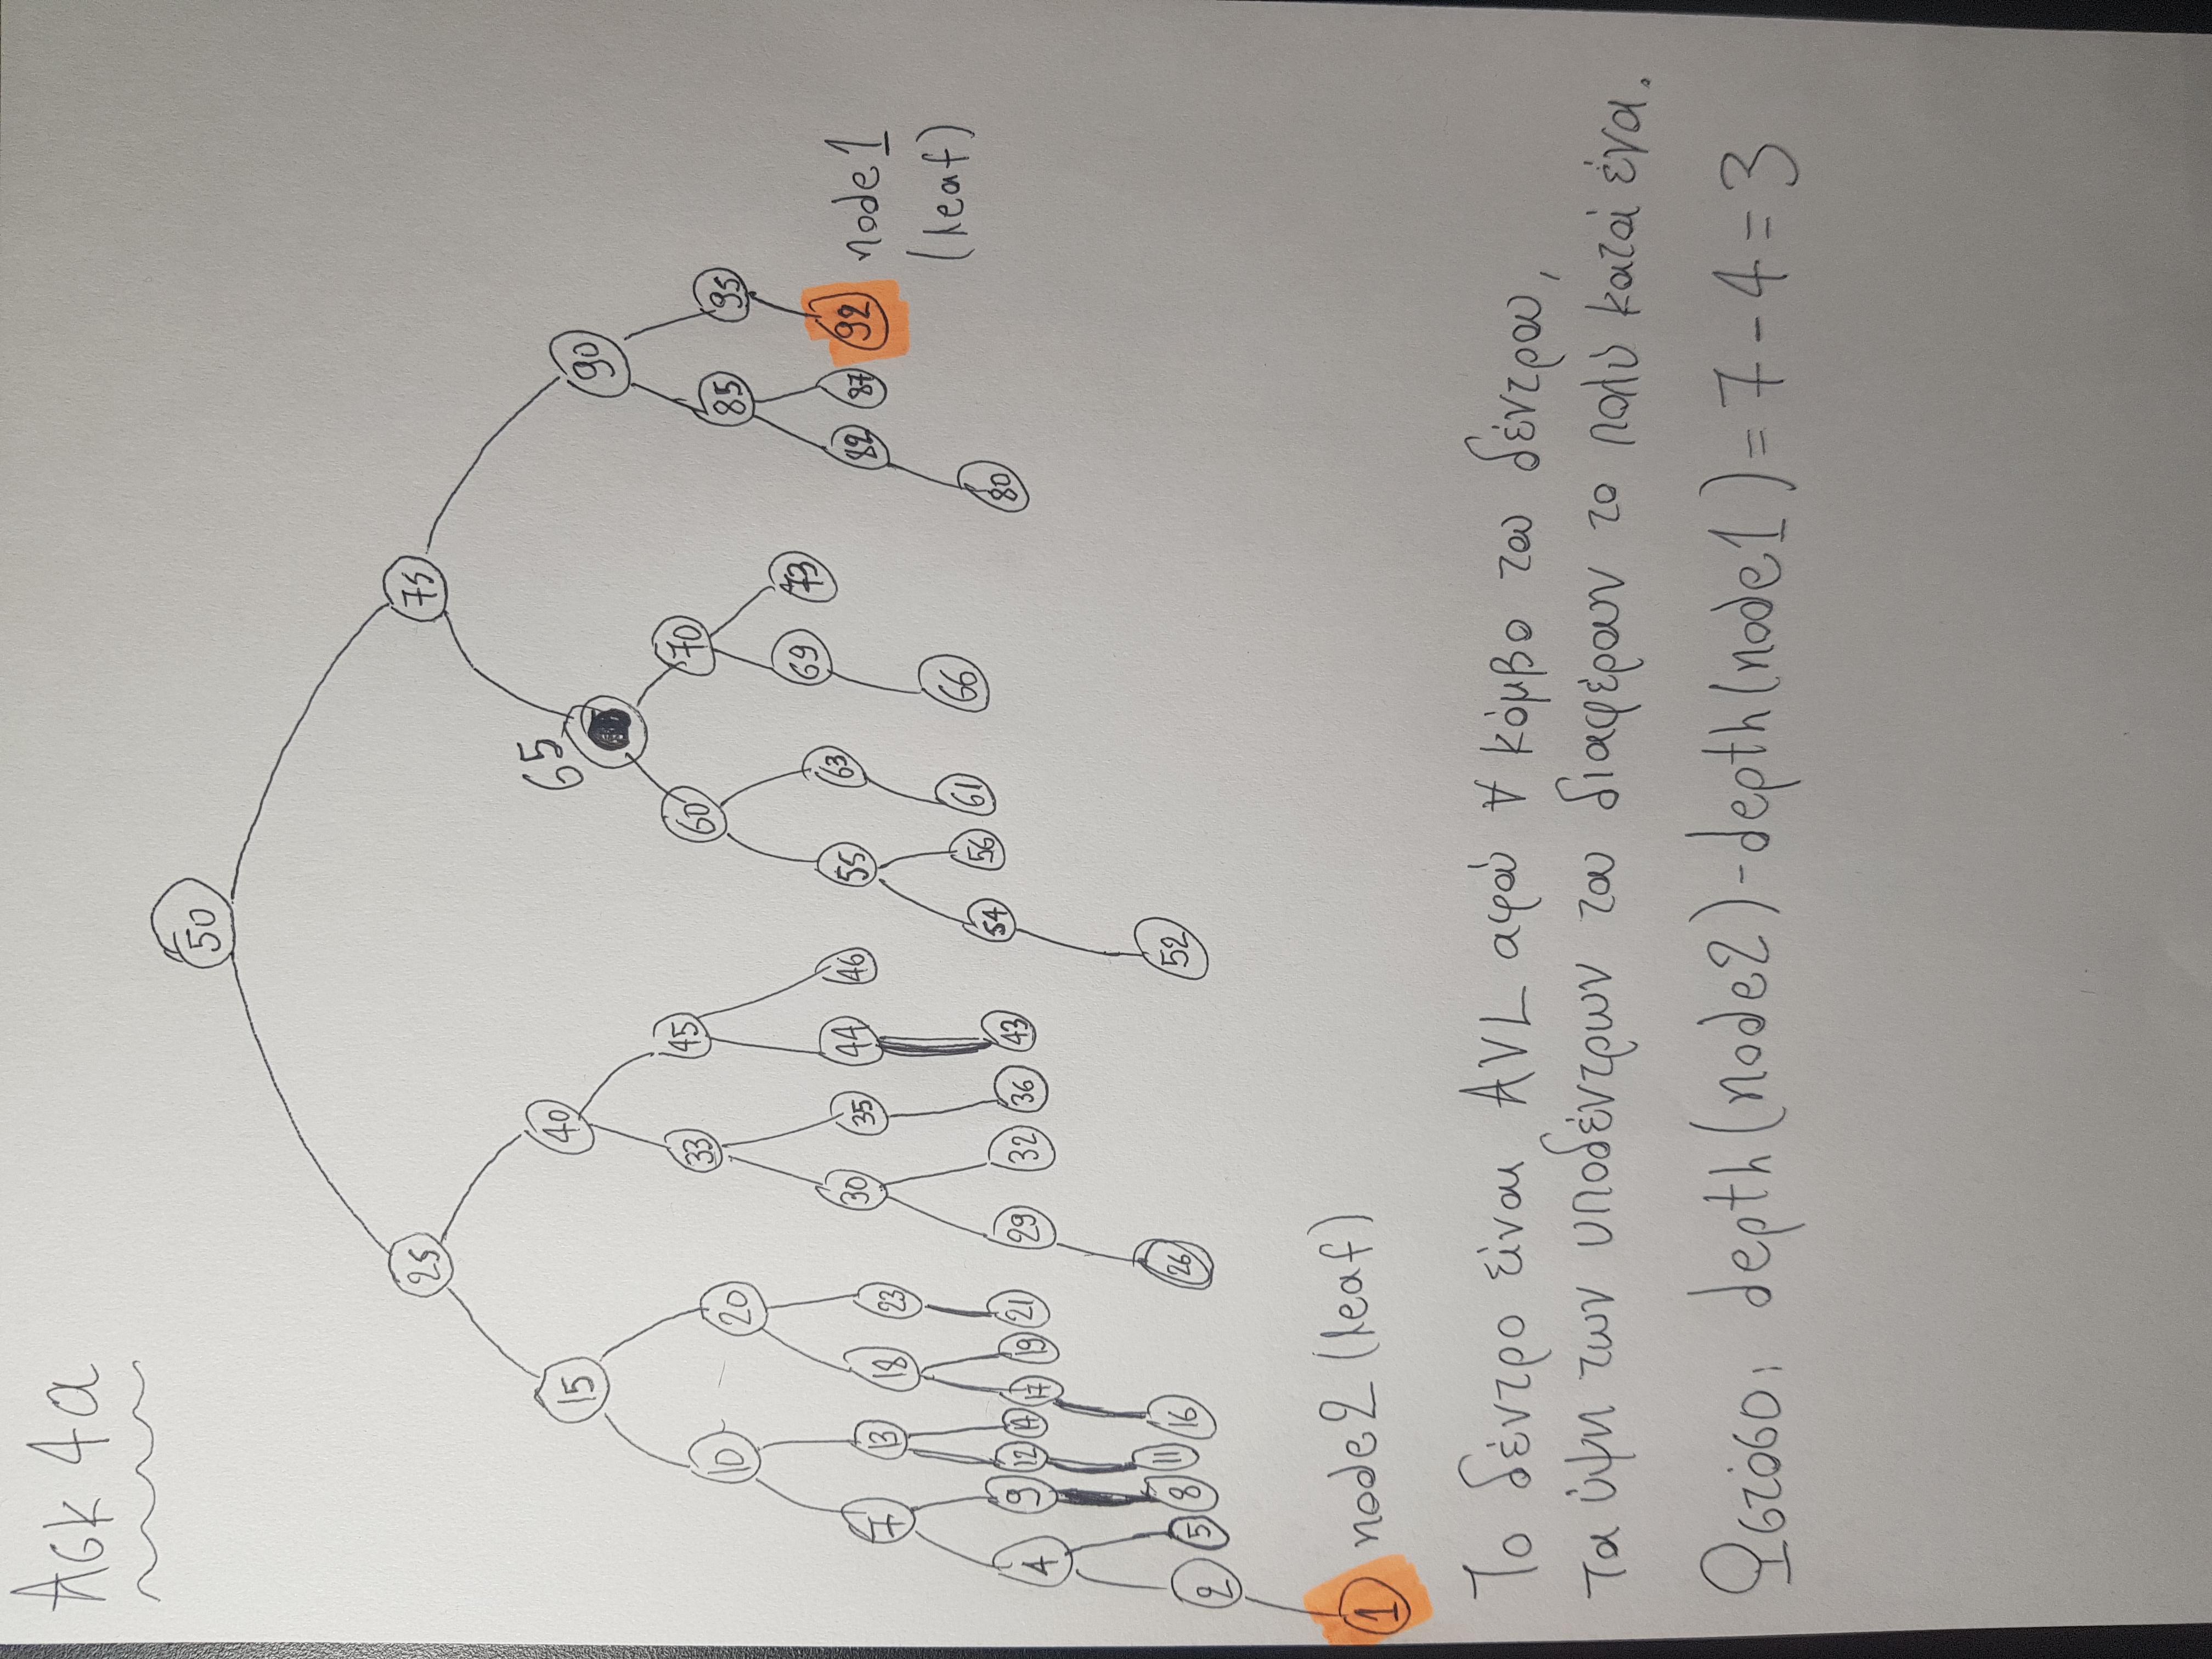 Ασκ 4α
50
25 75
15 40 65 90
10 20 33 45 60 70 85 95
7 13 18 23 30 35 44 46 55 63 69 73 82 87 92 node1
(leaf)
4 9 12 14 17 19 21 29 32 36 43 54 56 61 66 80
2 5 8 11 16 26 52
1 node2 (leaf)
Το δέντρο είναι AVL αφού ∀ κόμβο του δέντρου,
τα ύψη των υποδέντρων του διαφέρουν το πολύ κατά ένα.
Ωστόσο, depth(node2)-depth(node1)=7-4=3